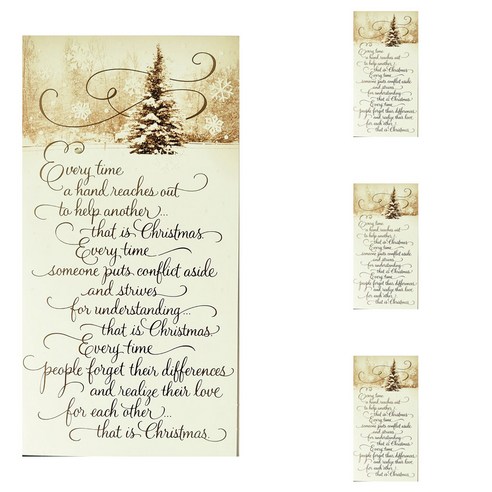 Every time
a hand reaches out
to help another...
that is Christmas.
Every time
someone puts conflict aside
and strives
for understanding...
that is Christmas.
Every time
people forget their differences
and realize their love
for each other...
that is Christmas.
Every time
a hand reaches out
to help another...
that is Christmas.
Every time
someone puts conflict aside
and strives
for understanding...
that is Christmas.
Every time
people forget their differences
and realize their love
for each other...
that is Christmas.
Every time
a hand reaches out
to help another...
that is Christmas.
Every time
someone puts conflict aside
and strives
for understanding...
that is Christmas.
Every time
people forget their differences
and realize their love
for each other...
that is Christmas.
Every time
a hand reaches out
to help another...
that is Christmas.
Every time
someone puts conflict aside
and strives
for understanding...
that is Christmas.
Every time
people forget their differences
and realize their love
for each other...
that is Christmas.